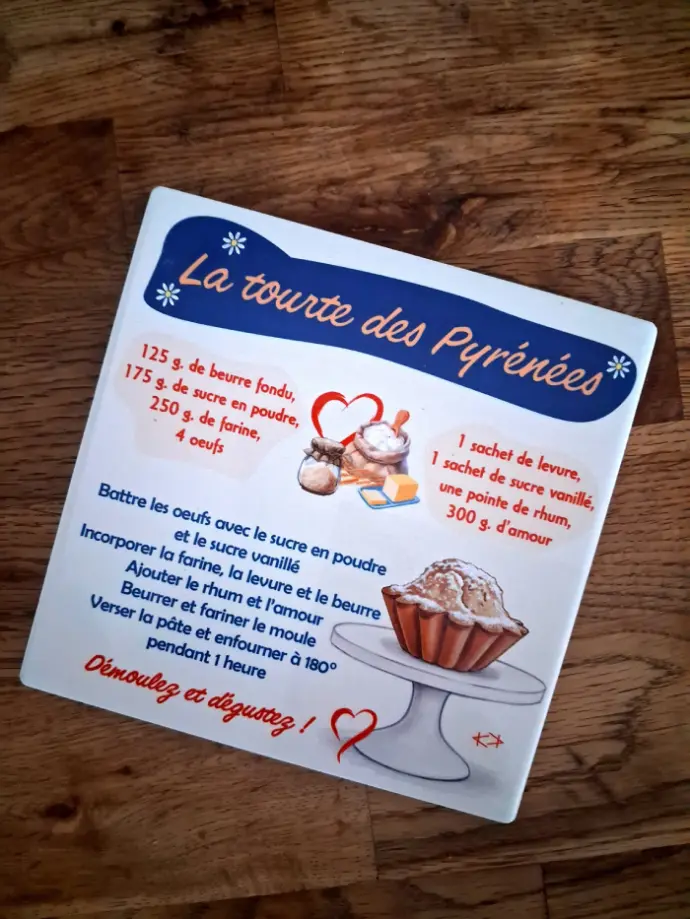 La tourte des Pyrénées
125 g. de beurre fondu,
175 g. de sucre en poudre,
250 g. de farine,
4 oeufs
1 sachet de levure,
1 sachet de sucre vanillé,
une pointe de rhum,
300 g. d'amour
Battre les oeufs avec le sucre en poudre
et le sucre vanillé
Incorporer la farine, la levure et le beurre
Ajouter le rhum et l'amour
Beurrer et fariner le moule
Verser la pâte et enfourner à 180°
pendant 1 heure
Démoulez et dégustez !